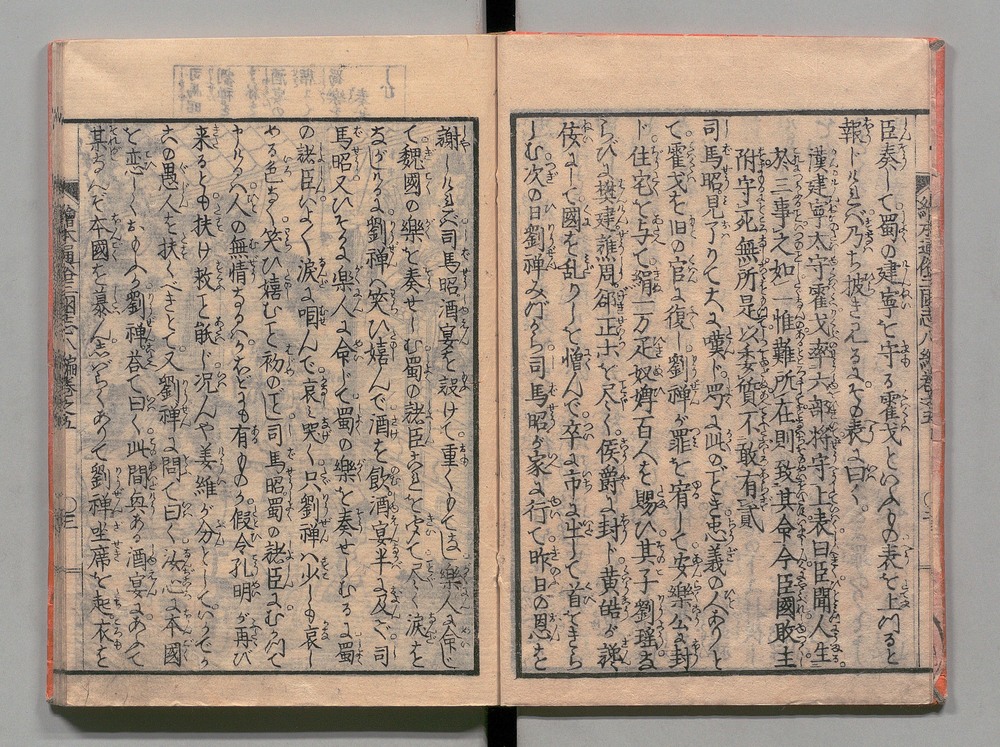 臣奏して蜀の建寧を守る霍弋といふもの表を上つると
報じければ乃ち披き見るにその表に曰く
漢建寧太守霍弋率六部将守上表曰臣聞人生
於三事之如一惟難所在則致其命今臣國敗主
附守死無所是以委質不敢有貳
司馬昭見了りて大に嘆じ此のごとき忠義の人ありと
て霍弋を旧の官に復し劉禅が罪を宥して安樂公に封
じ住宅を与て絹一万疋奴婢百人を賜ひ其子劉瑶な
らびに樊建譙周郤正等を尽く侯爵に封じ黄皓が讒
佞にして國を乱りしを憎んで卒に市に生して首をきら
しむ次の日劉禅みづから司馬昭が家に行て昨日の恩を
繪本通俗三國志八編巻之五
謝しければ司馬昭酒宴を設けて重くもてなし樂人に命じ
て魏國の樂を奏せしむ蜀の諸臣これを見て尽く涙を
ながしけるに劉禅ハ笑ひ嬉んで酒を飲酒宴半に及で司
馬昭又ひそかに楽人に命じて蜀の樂を奏せしむるに蜀
の諸臣いよく涙に咽んで哀ミ哭く只劉禅ハ少しも哀し
める色なく笑ひ嬉むこと初のごとし司馬昭蜀の諸臣にむかつて
かゝる人の無情なるハかほどにも有ものか假令孔明が再び
来るとも扶け救こと敵じ况んや姜維が分としていかでか
六の愚人を扶くべきとて又劉禅に問て曰く汝心に本國
を恋しくおもふか劉禅答て曰く此間興ある酒宴にあふて
某なんぞ本國を慕んまことしくあつて劉禅坐席を起衣を
繪本通俗三國志八編巻之五
〇三